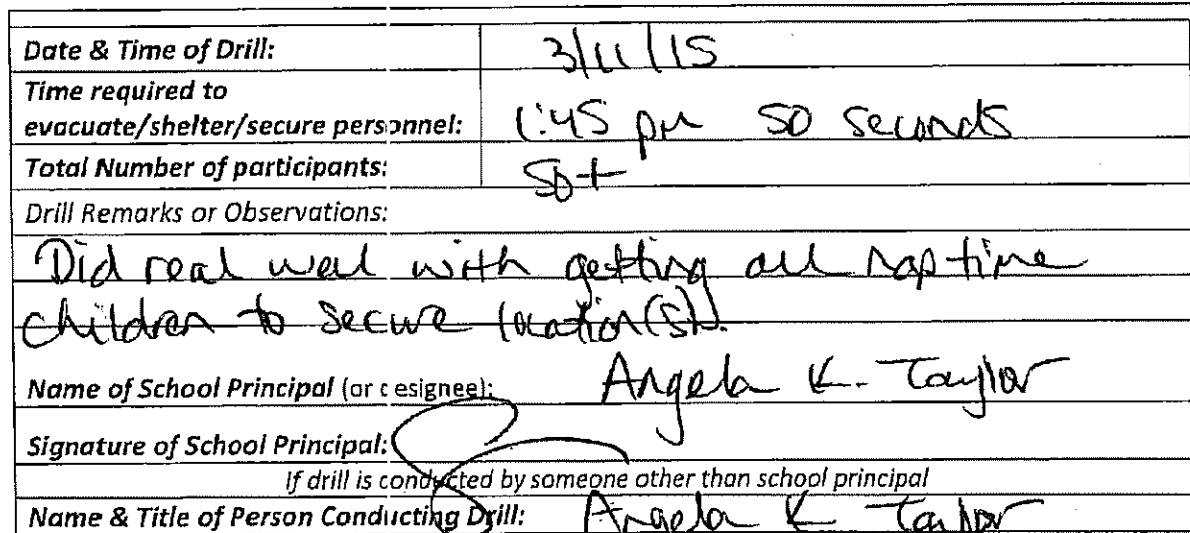 Date & Time of Drill: 3/11/15
Time required to
evacuate/shelter/secure personnel: 1:45 pm 50 seconds
Total Number of participants: 50+
Drill Remarks or Observations:
Did real well with getting all nap time
children to secure location(s).
Name of School Principal (or designee): Angela K. Taylor
Signature of School Principal:
If drill is conducted by someone other than school principal
Name & Title of Person Conducting Drill: Angela K Taylor